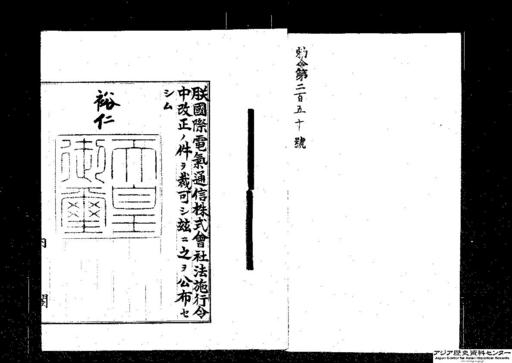 勅令第二百五十號
朕國際電氣通信株式會社法施行令
中改正ノ件ヲ裁可シ玆ニ之ヲ公布セ
シム
裕仁
天皇
御璽
内閣
アジア歴史資料センター
Japan Center for Asian Historical Records